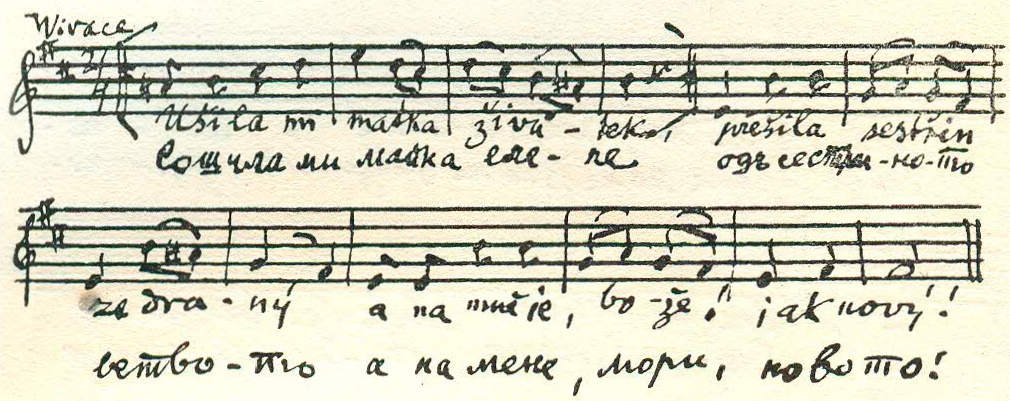 Wivace
2/4
Ušila mi matka živů - tek, přešila sestřin
сошила ми майка еле - че одъ сестри-но-то
ze dra - ný a na mně je, bo - že! jak nový!
ветво - то а на мене, мори, ново то!